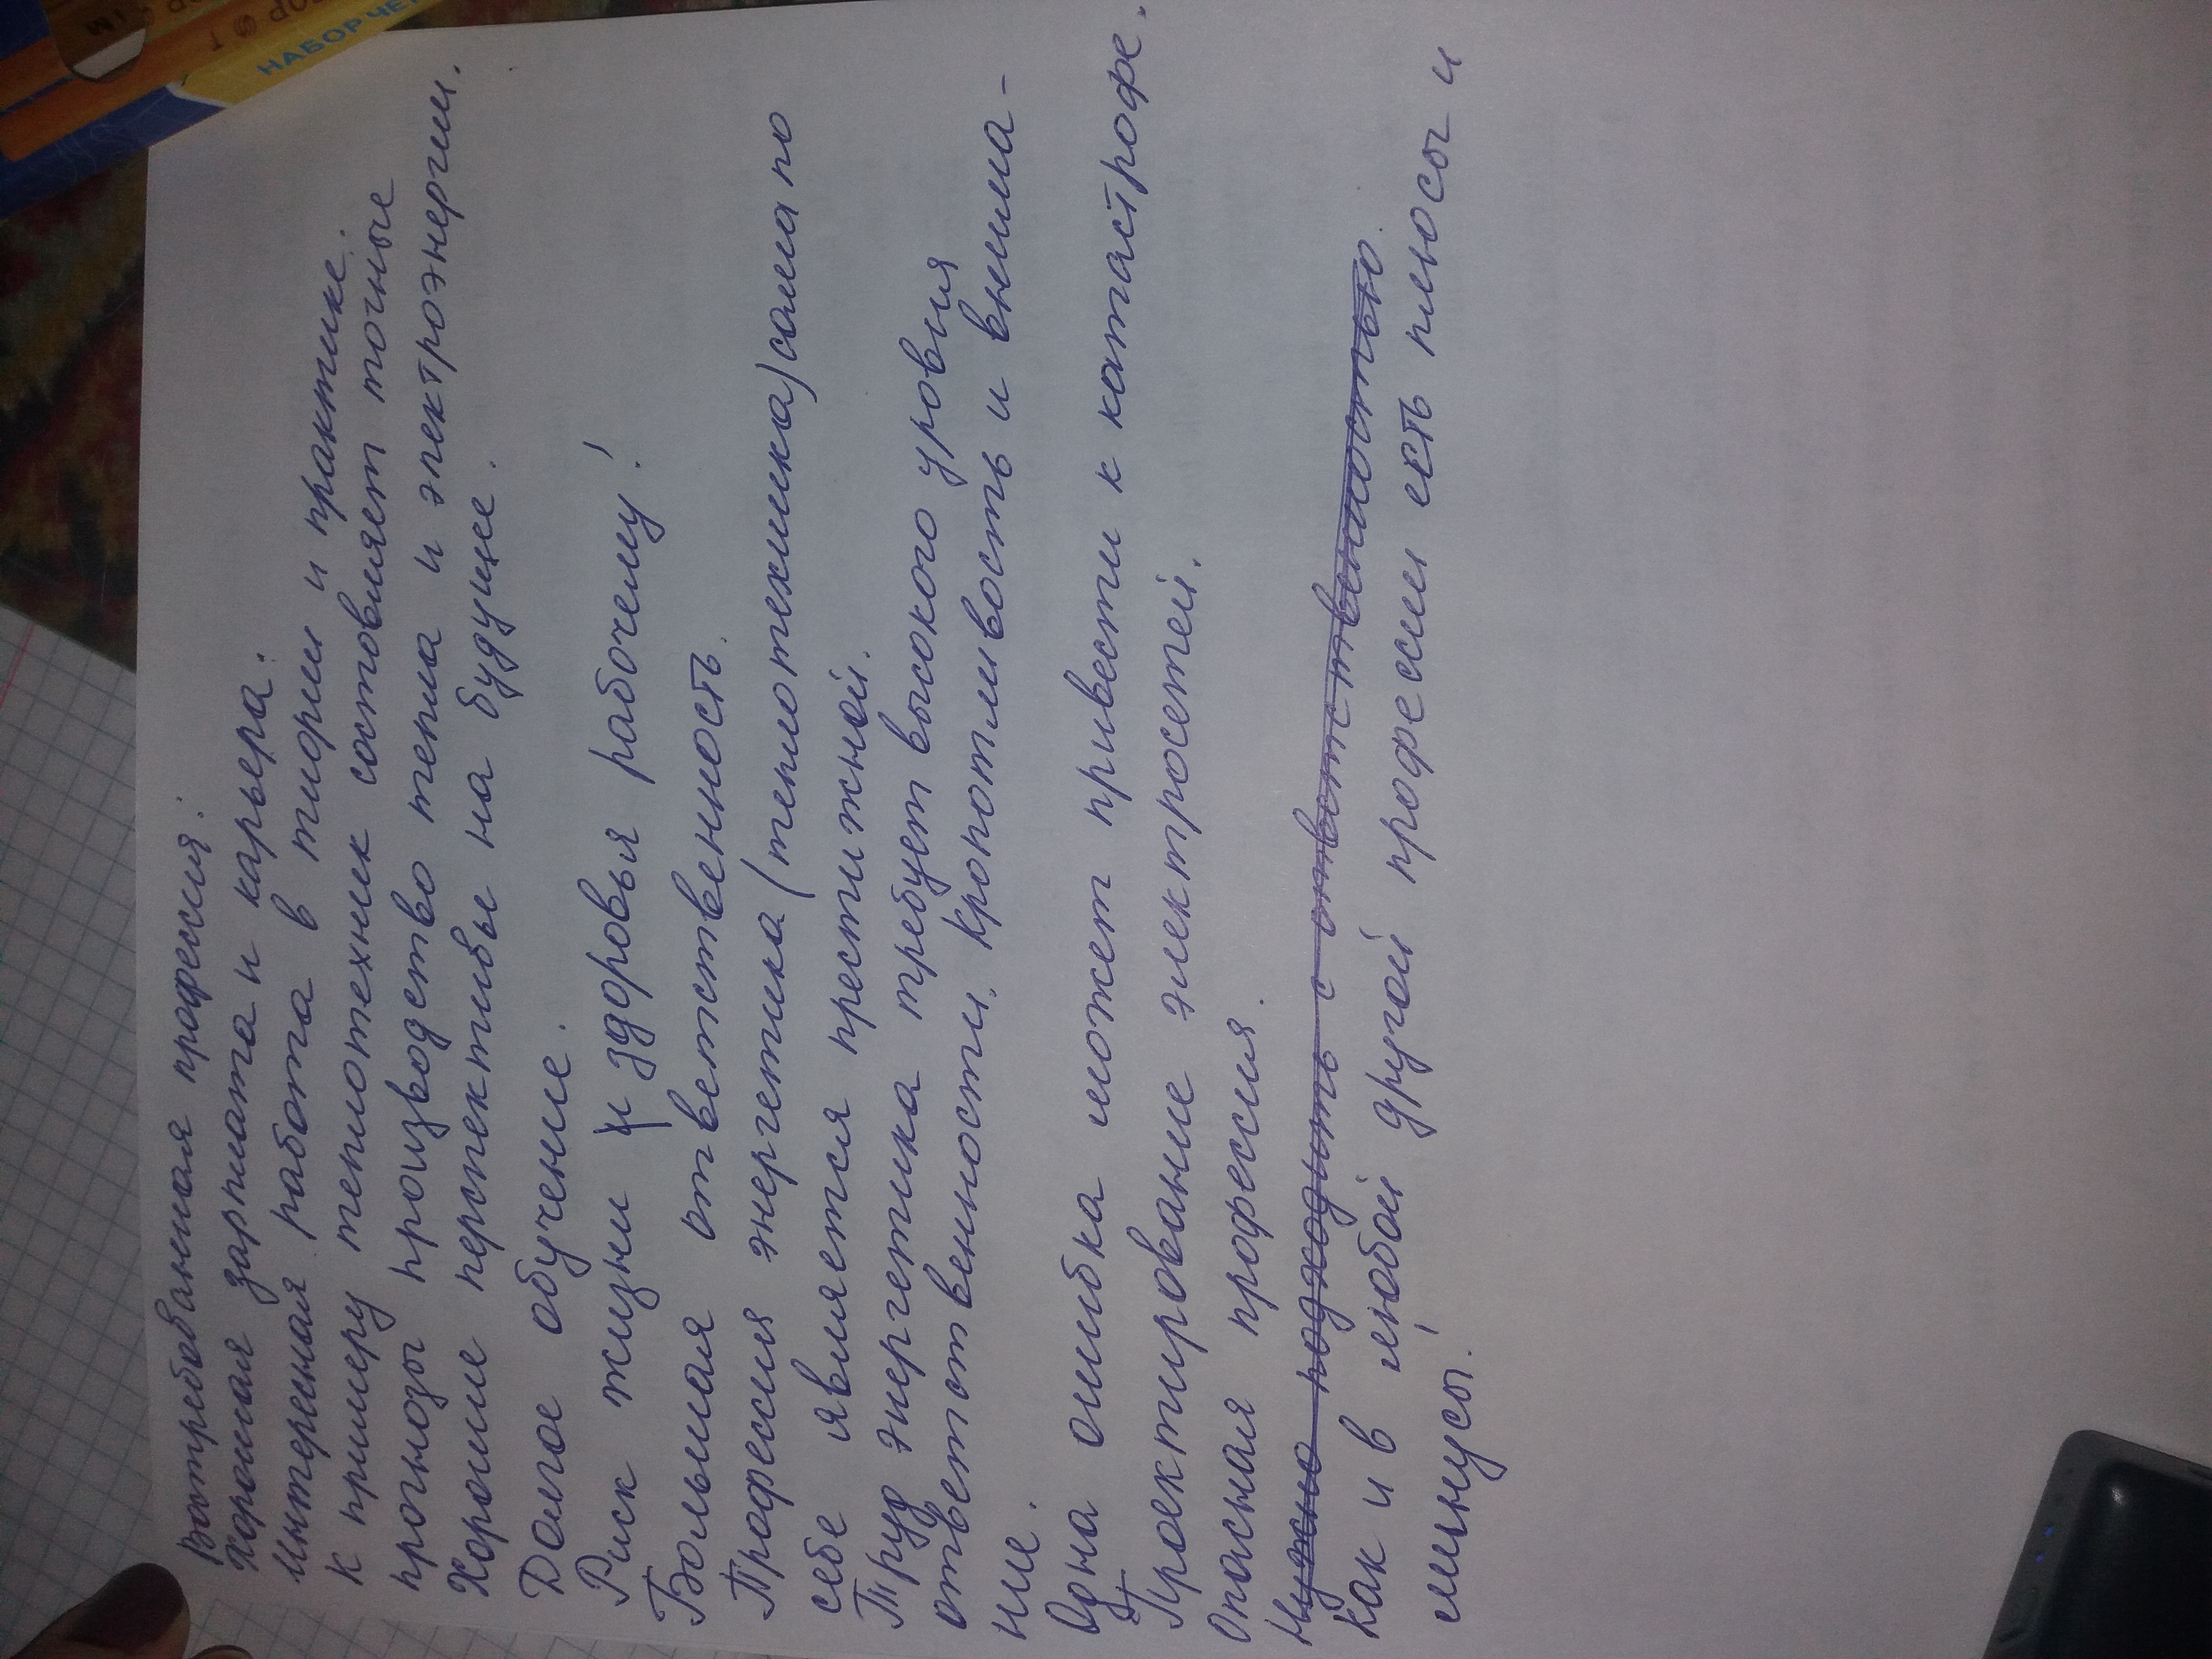 Вотребованная професия.
Хорошая зарплата и карьера.
Интересная работа в тиории и практике.
К примеру теплотехник состовляет точные
прогнозы производство тепла и электроэнергии.
Хорошие перспективы на будущее.
Долгое обучение.
Риск жизни и здоровья рабочему!
Большая ответственность.
Професия энергетика (теплотехника) сама по
себе является престижной.
Труд энергетика требует высокого уровня
ответственности. Кропотливость и внима-
ние.
Одна ошибка может привести к катастрофе.
Проектирование электросетей.
Опасная професия.
Нужно подходить с ответственностью.
Как и в любой другой професии есть плюсы и
минусы!
НАБОР ЧЕР